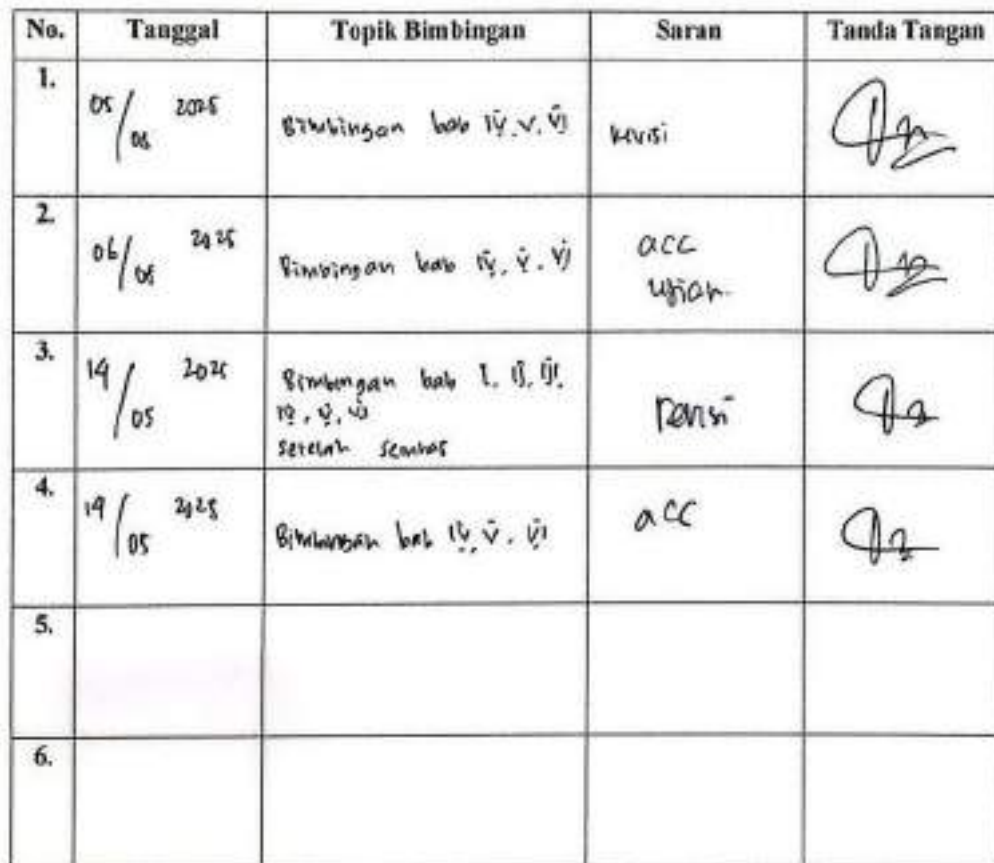 No. Tanggal Topik Bimbingan Saran Tanda Tangan
1. 05/05 2025 Bimbingan bab IV, V, VI revisi
2. 06/05 2025 Bimbingan bab IV, V, VI acc
ujian
3. 14/05 2025 Bimbingan bab I, II, III, revisi
IV, V, VI
setelah semhas
4. 19/05 2025 Bimbingan bab IV, V, VI acc
5.
6.